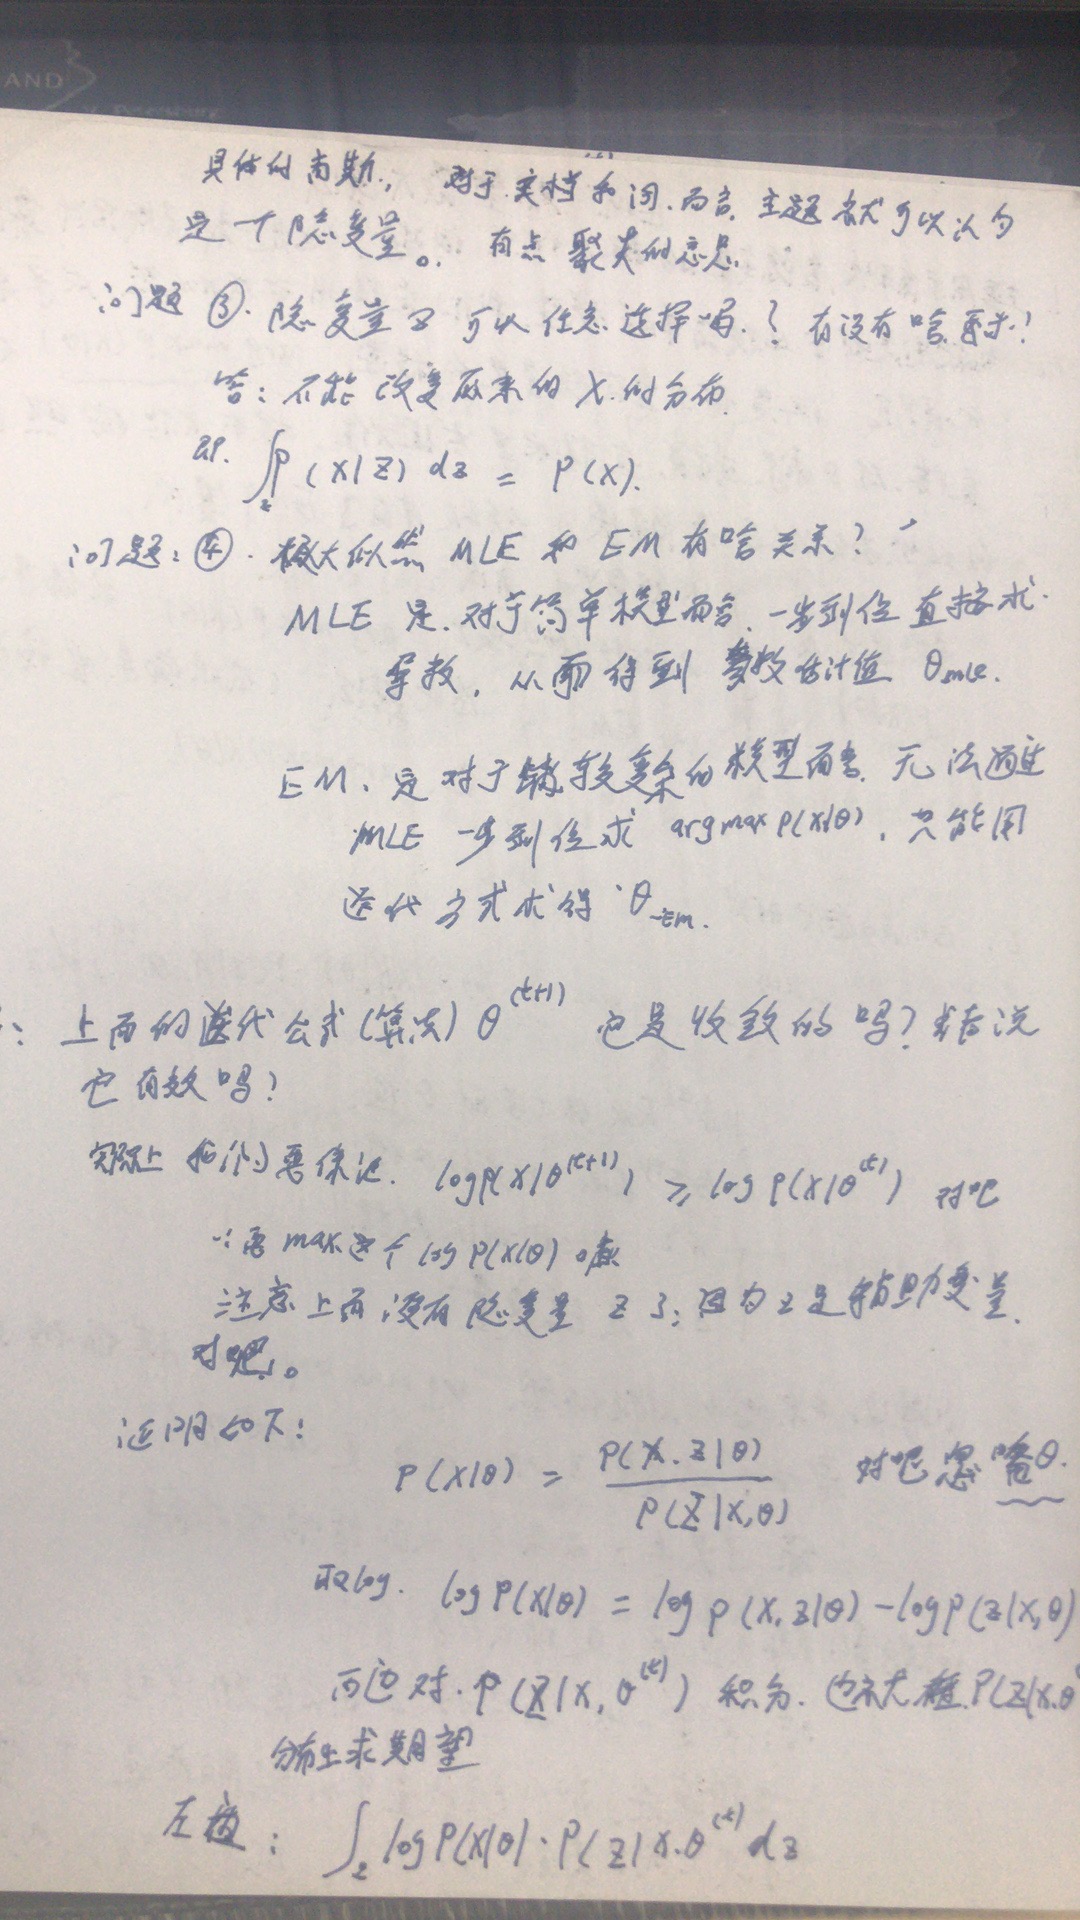 AND
具体的高斯, 对于文档和词而言, 主题就可以认为
是一个隐变量。 有点聚类的意思.
问题③. 隐变量 Z 可以任意选择吗? 有没有啥要求?
答: 不能改变原来的 X 的分布.
即. ∫_z P(X|Z) dz = P(X).
问题: ④. 极大似然 MLE 和 EM 有啥关系?
MLE 是. 对于简单模型而言, 一步到位直接求
导数, 从而得到参数估计值 θ_mle.
EM、是对于较复杂的模型而言. 无法通过
MLE 一步到位求 argmax P(X|θ), 只能用
迭代方式求得 θ_EM.
: 上面的迭代公式(算法) θ^(t+1) 它是收敛的吗? 或者说
它有效吗?
实际上 我们要保证. log P(X|θ^(t+1)) ≥ log P(X|θ^(t)) 对吧
∵要 max 这个 log P(X|θ)
注意上面没有隐变量 Z 了; 因为 Z 是辅助变量.
对吧。
证明如下:
P(X|θ) = P(X, Z|θ) / P(Z|X,θ) 对吧 忽略θ.
取log. log P(X|θ) = log P(X, Z|θ) - log P(Z|X,θ)
两边对. P(Z|X, θ^(t)) 积分. 也就是在 P(Z|X,θ
分布上求期望
左边: ∫_z log P(X|θ) · P(Z|X,θ^(t)) dz